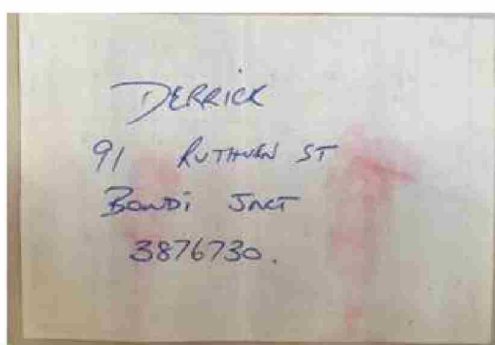 DERRICK
91 RUTHVEN ST
BONDI JNCT
3876730.